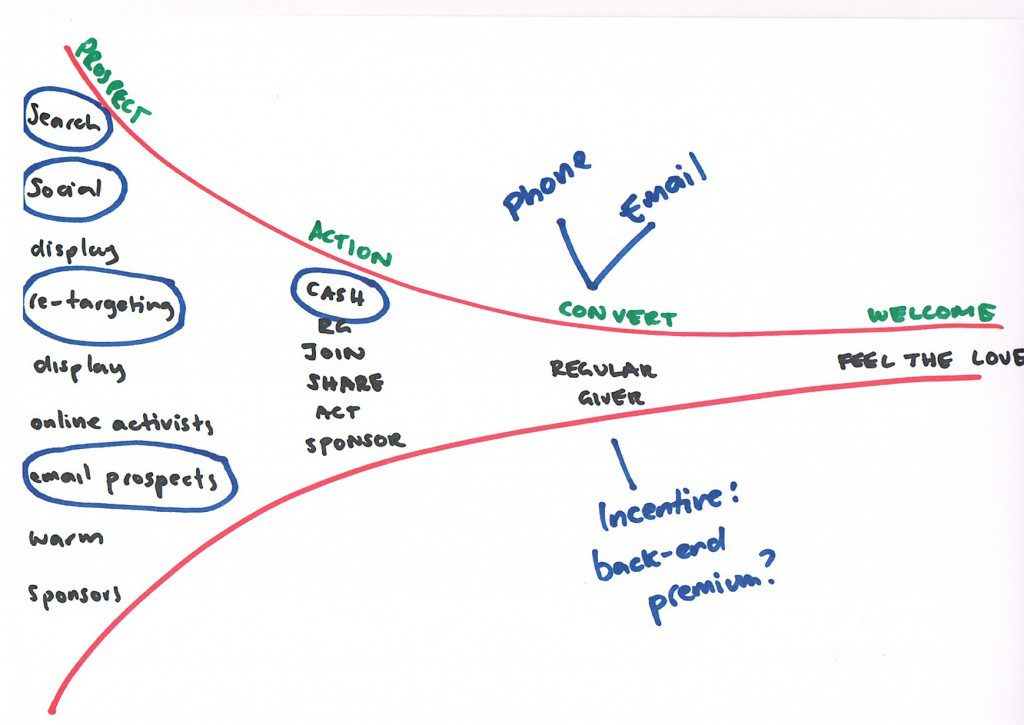 PROSPECT
Search
Social
display
re-targeting
display
online activists
email prospects
warm
sponsors
ACTION
CASH
RG
JOIN
SHARE
ACT
SPONSOR
Phone
Email
CONVERT
REGULAR
GIVER
Incentive:
back-end
premium?
WELCOME
FEEL THE LOVE